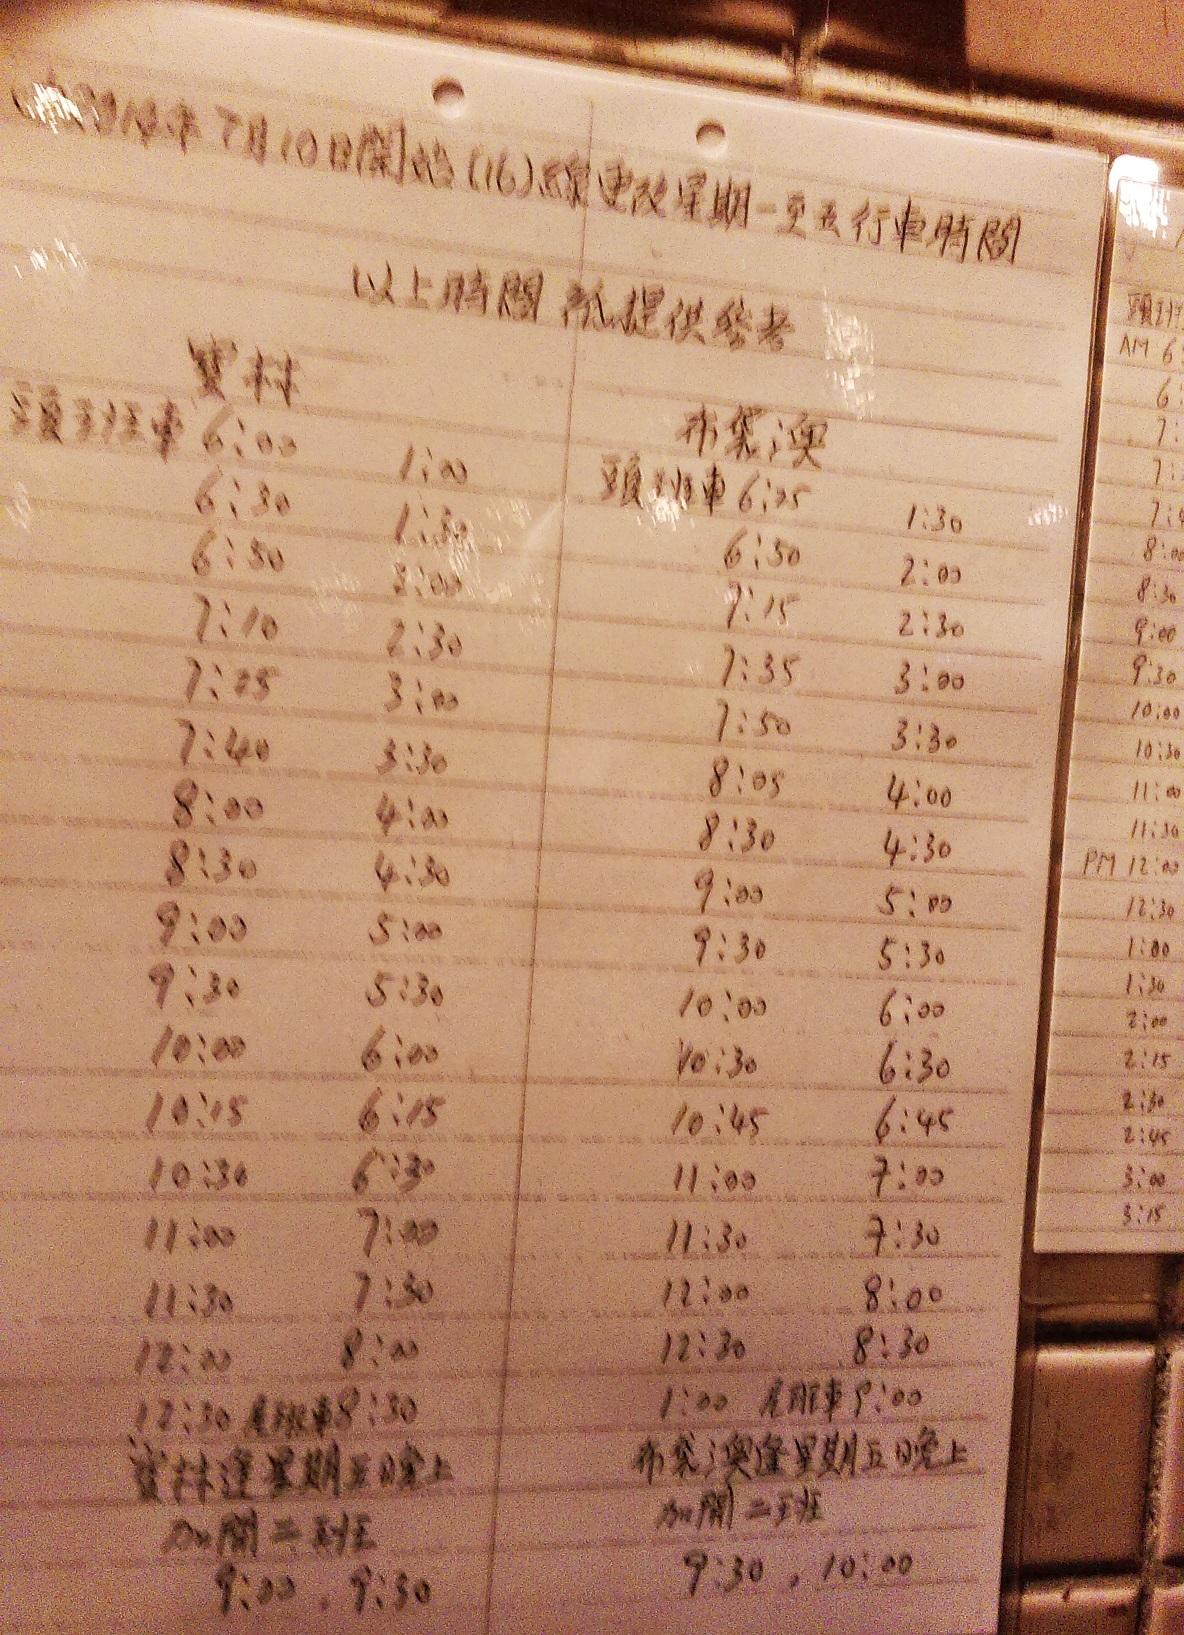 年7月10日開始(16)線更改星期一至五行車時間
以上時間 祇提供參考
寶林
頭班車 6:00 1:00
6:30 1:30
6:50 2:00
7:10 2:30
7:25 3:00
7:40 3:30
8:00 4:00
8:30 4:30
9:00 5:00
9:30 5:30
10:00 6:00
10:15 6:15
10:30 6:30
11:00 7:00
11:30 7:30
12:00 8:00
12:30 尾班車8:30
寶林逢星期五日晚上
加開二班
9:00 , 9:30
布袋澳
頭班車 6:25 1:30
6:50 2:00
7:15 2:30
7:35 3:00
7:50 3:30
8:05 4:00
8:30 4:30
9:00 5:00
9:30 5:30
10:00 6:00
10:30 6:30
10:45 6:45
11:00 7:00
11:30 7:30
12:00 8:00
12:30 8:30
1:00 尾班車9:00
布袋澳逢星期五日晚上
加開二班
9:30 , 10:00
頭班
AM 6:
6:
7:
7:
7:4
8:00
8:30
9:00
9:30
10:00
10:30
11:00
11:30
PM 12:00
12:30
1:00
1:30
2:00
2:15
2:30
2:45
3:00
3:15